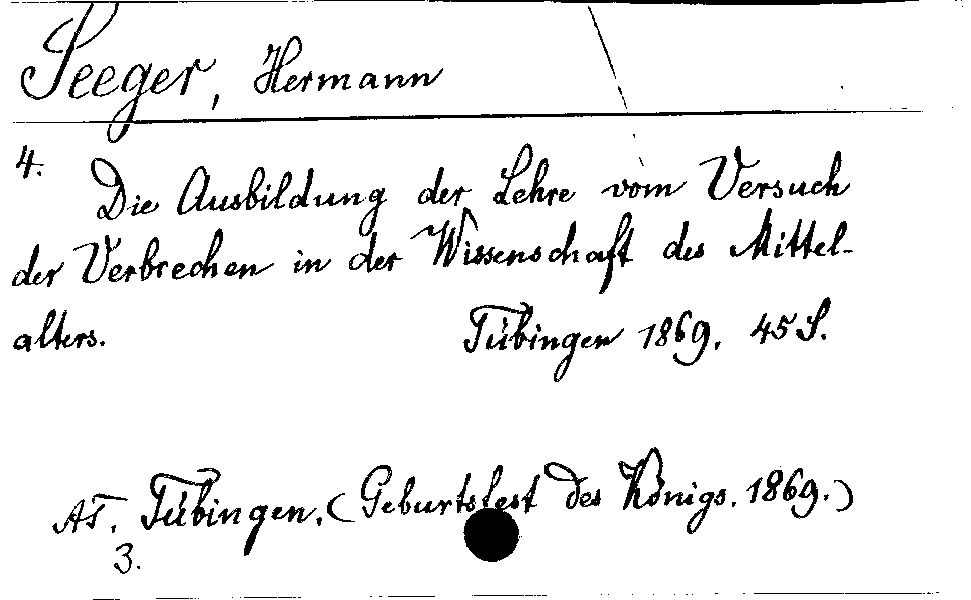 Seeger, Hermann
4.
Die Ausbildung der Lehre vom Versuch
der Verbrechen in der Wissenschaft des Mittel-
alters.
Tübingen 1869. 45 S.
AT. Tübingen. (Geburtsfest des Königs. 1869.)
3.